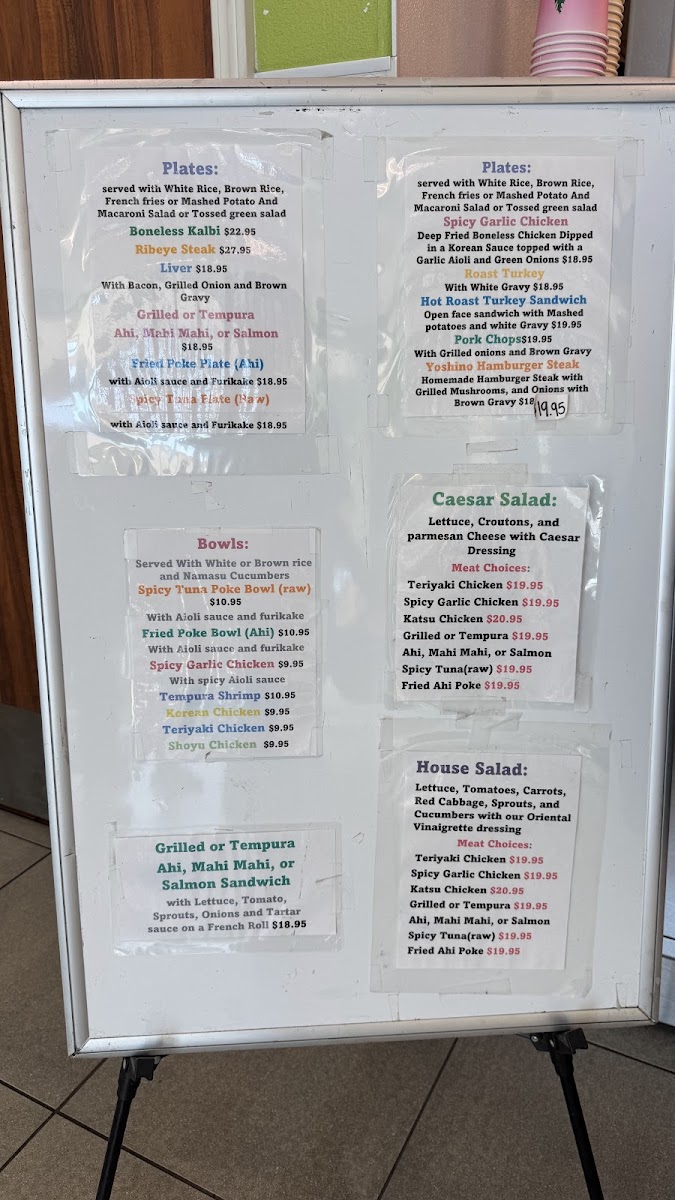 Plates:
served with White Rice, Brown Rice,
French fries or Mashed Potato And
Macaroni Salad or Tossed green salad
Boneless Kalbi $22.95
Ribeye Steak $27.95
Liver $18.95
With Bacon, Grilled Onion and Brown
Gravy
Grilled or Tempura
Ahi, Mahi Mahi, or Salmon
$18.95
Fried Poke Plate (Ahi)
with Aioli sauce and Furikake $18.95
Spicy Tuna Plate (Raw)
with Aioli sauce and Furikake $18.95
Bowls:
Served With White or Brown rice
and Namasu Cucumbers
Spicy Tuna Poke Bowl (raw)
$10.95
With Aioli sauce and furikake
Fried Poke Bowl (Ahi) $10.95
With Aioli sauce and furikake
Spicy Garlic Chicken $9.95
With spicy Aioli sauce
Tempura Shrimp $10.95
Korean Chicken $9.95
Teriyaki Chicken $9.95
Shoyu Chicken $9.95
Grilled or Tempura
Ahi, Mahi Mahi, or
Salmon Sandwich
with Lettuce, Tomato,
Sprouts, Onions and Tartar
sauce on a French Roll $18.95
Plates:
served with White Rice, Brown Rice,
French fries or Mashed Potato And
Macaroni Salad or Tossed green salad
Spicy Garlic Chicken
Deep Fried Boneless Chicken Dipped
in a Korean Sauce topped with a
Garlic Aioli and Green Onions $18.95
Roast Turkey
With White Gravy $18.95
Hot Roast Turkey Sandwich
Open face sandwich with Mashed
potatoes and white Gravy $19.95
Pork Chops$19.95
With Grilled onions and Brown Gravy
Yoshino Hamburger Steak
Homemade Hamburger Steak with
Grilled Mushrooms, and Onions with
Brown Gravy $18 19.95
Caesar Salad:
Lettuce, Croutons, and
parmesan Cheese with Caesar
Dressing
Meat Choices:
Teriyaki Chicken $19.95
Spicy Garlic Chicken $19.95
Katsu Chicken $20.95
Grilled or Tempura $19.95
Ahi, Mahi Mahi, or Salmon
Spicy Tuna(raw) $19.95
Fried Ahi Poke $19.95
House Salad:
Lettuce, Tomatoes, Carrots,
Red Cabbage, Sprouts, and
Cucumbers with our Oriental
Vinaigrette dressing
Meat Choices:
Teriyaki Chicken $19.95
Spicy Garlic Chicken $19.95
Katsu Chicken $20.95
Grilled or Tempura $19.95
Ahi, Mahi Mahi, or Salmon
Spicy Tuna(raw) $19.95
Fried Ahi Poke $19.95